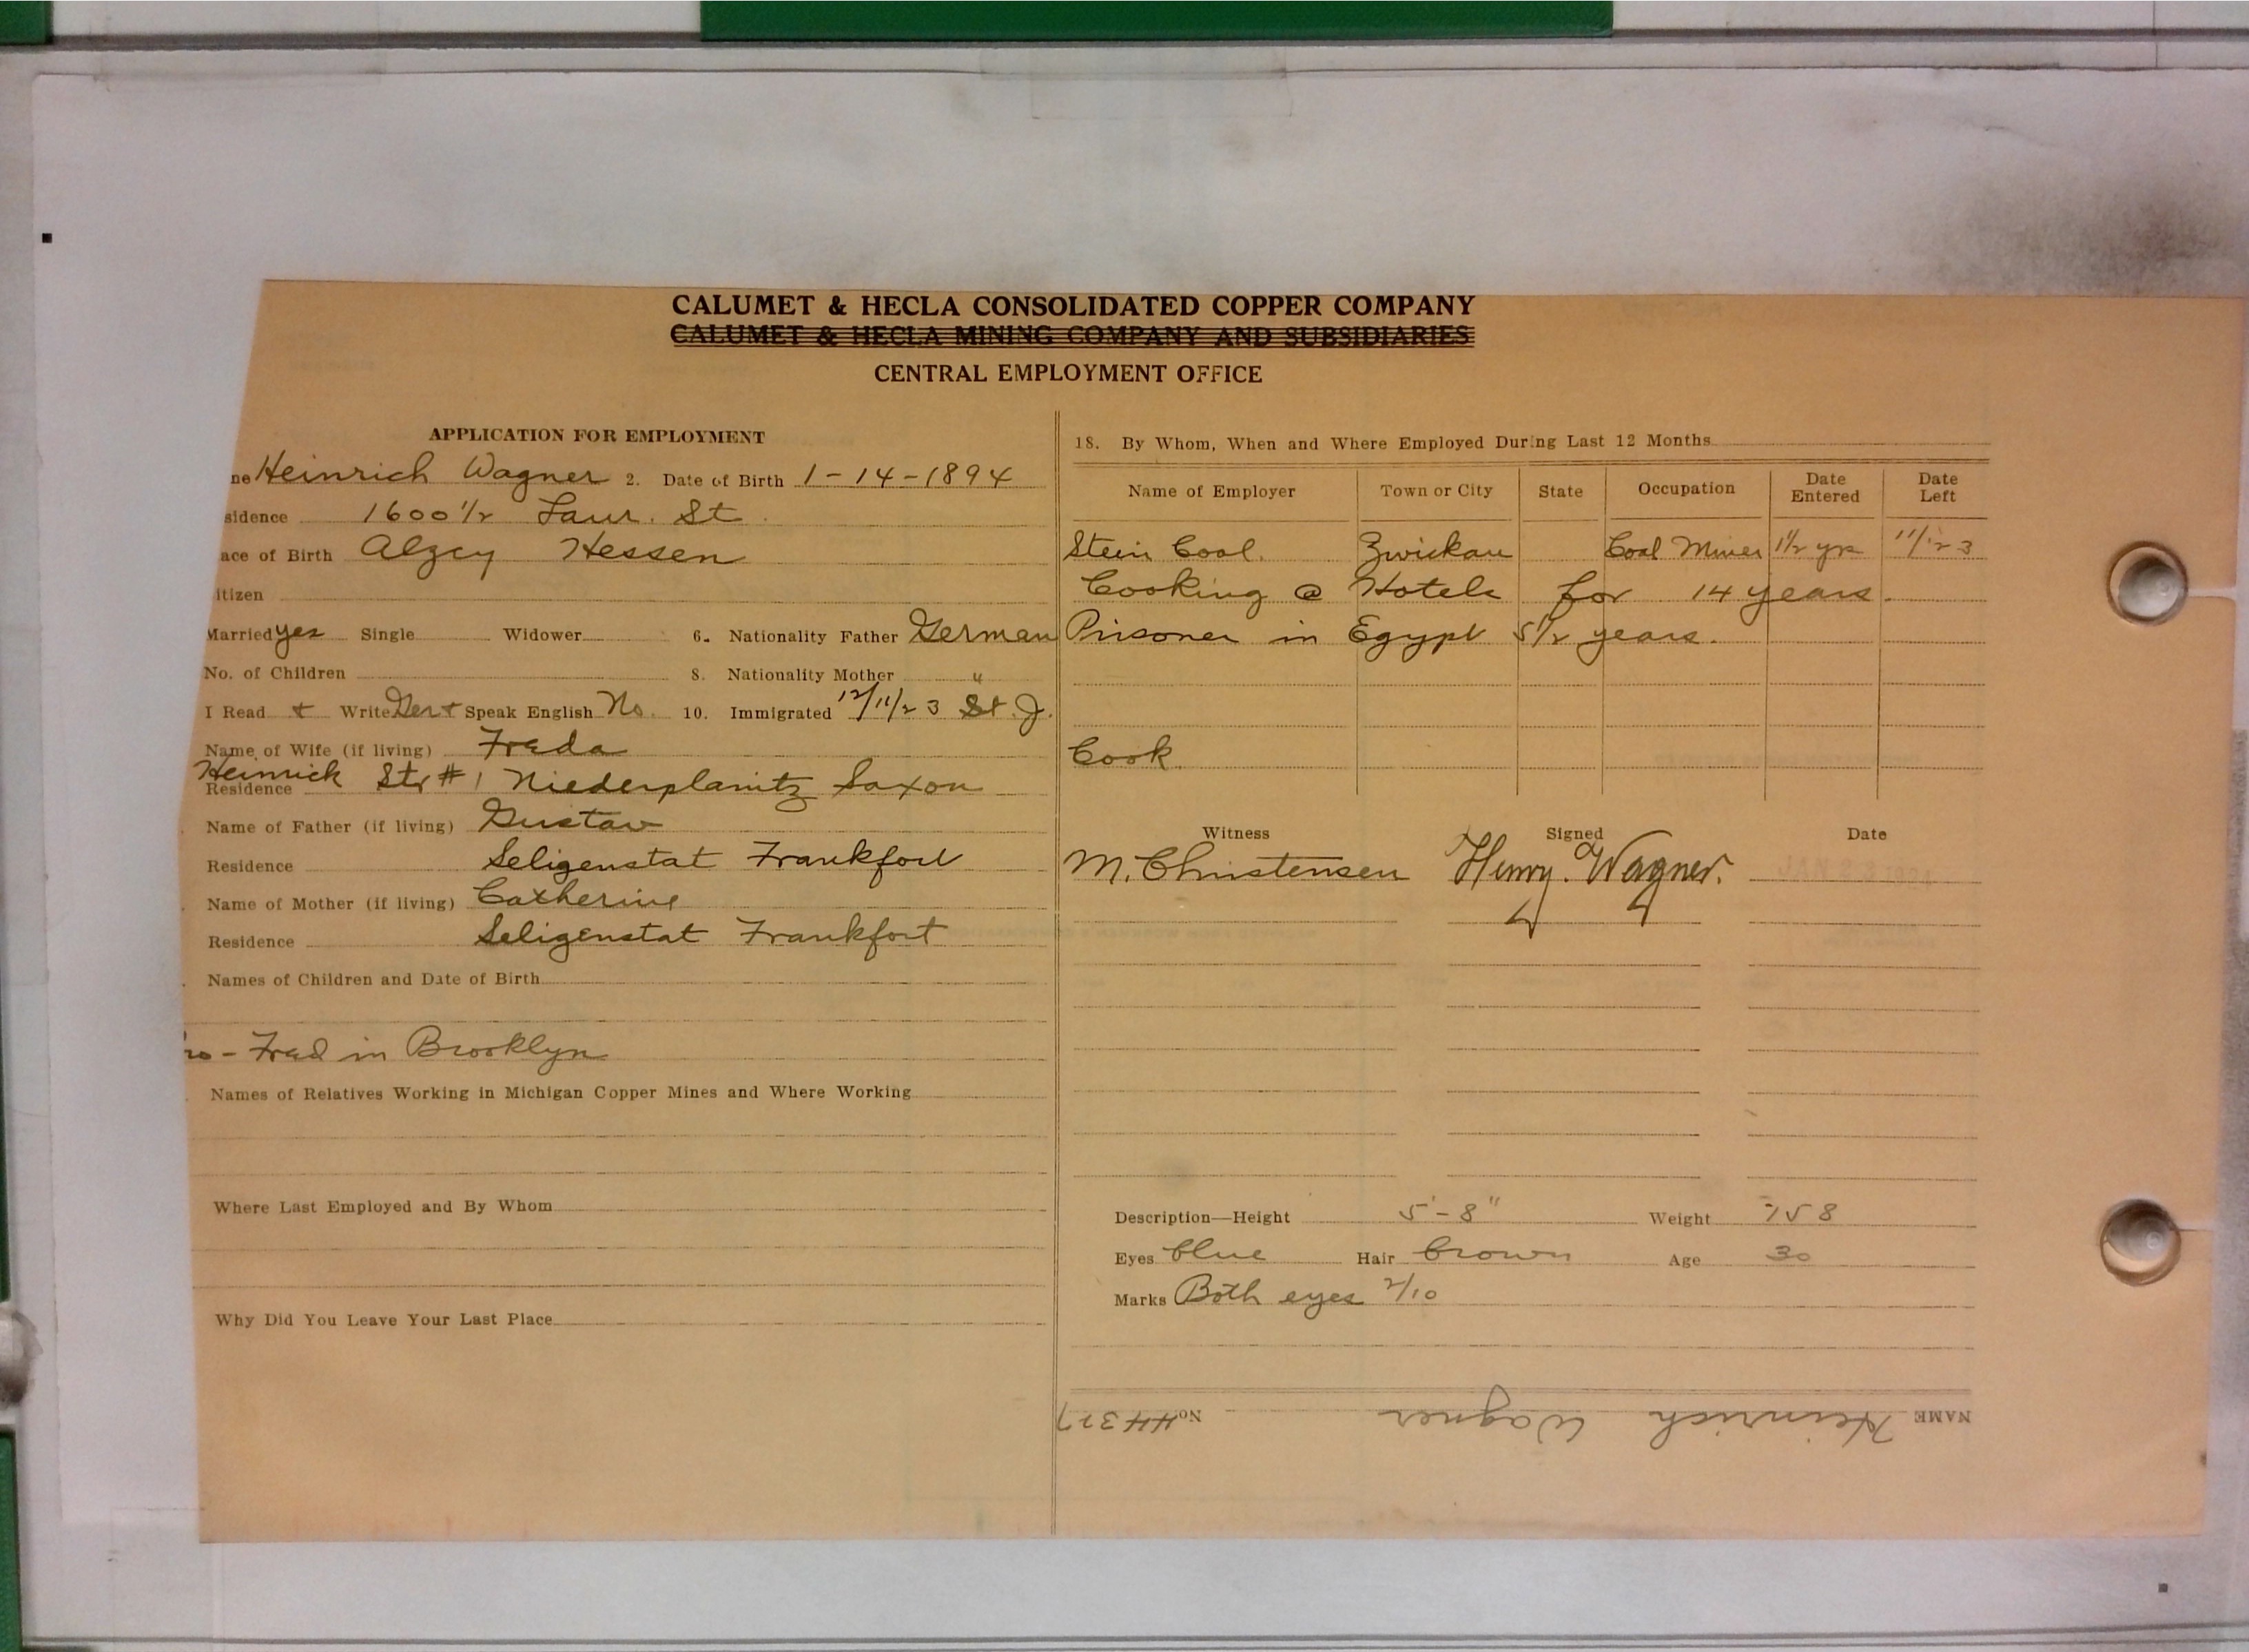 CALUMET & HECLA CONSOLIDATED COPPER COMPANY
CALUMET & HECLA MINING COMPANY AND SUBSIDIARIES
CENTRAL EMPLOYMENT OFFICE
APPLICATION FOR EMPLOYMENT
ne Heinrich Wagner 2. Date of Birth 1-14-1894
sidence 1600 1/2 Laur. St.
ace of Birth Alzey Hessen
itizen
Married yes Single Widower 6. Nationality Father German
No. of Children 8. Nationality Mother "
I Read + Write Ger + Speak English No. 10. Immigrated 12/11/23 St. J.
Name of Wife (if living) Freda
Heinrick Str #1 Niederplanitz Saxon
Residence
Name of Father (if living) Gustav
Residence Seligenstat Frankfort
Name of Mother (if living) Catherine
Residence Seligenstat Frankfort
Names of Children and Date of Birth
ro - Fred in Brooklyn
Names of Relatives Working in Michigan Copper Mines and Where Working
Where Last Employed and By Whom
Why Did You Leave Your Last Place
18. By Whom, When and Where Employed During Last 12 Months
Name of Employer Town or City State Occupation Date Entered Date Left
Stein Coal. Zwickau Coal Miner 1 1/2 yrs 11/23
Cooking @ Hotels for 14 years.
Prisoner in Egypt 5 1/2 years.
Cook
Witness Signed Date
M. Christensen Henry. Wagner.
Description—Height 5'-8" Weight 158
Eyes blue Hair brown Age 30
Marks Both eyes 2/10
NAME Heinrich Wagner No. 44327